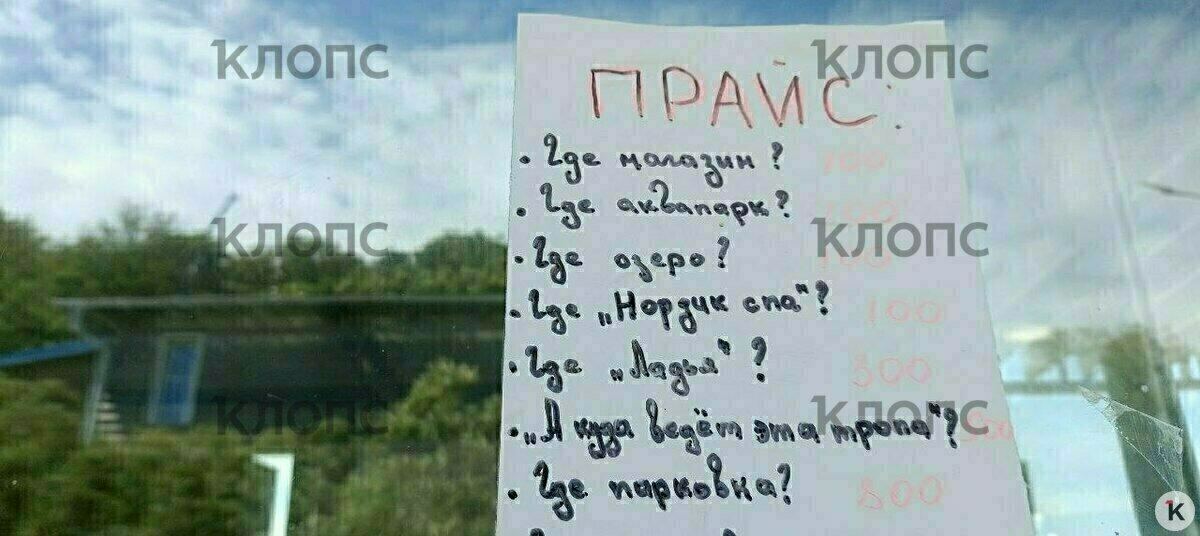 клопс
клопс
ПРАЙС:
• Где магазин? 100
• Где аквапарк? 100
клопс
клопс
• Где озеро? 100
• Где „Нордик спа"? 100
• Где „Ладья"? 300
клопс
клопс
• „А куда ведёт эта тропа"?
• Где парковка? 300
К